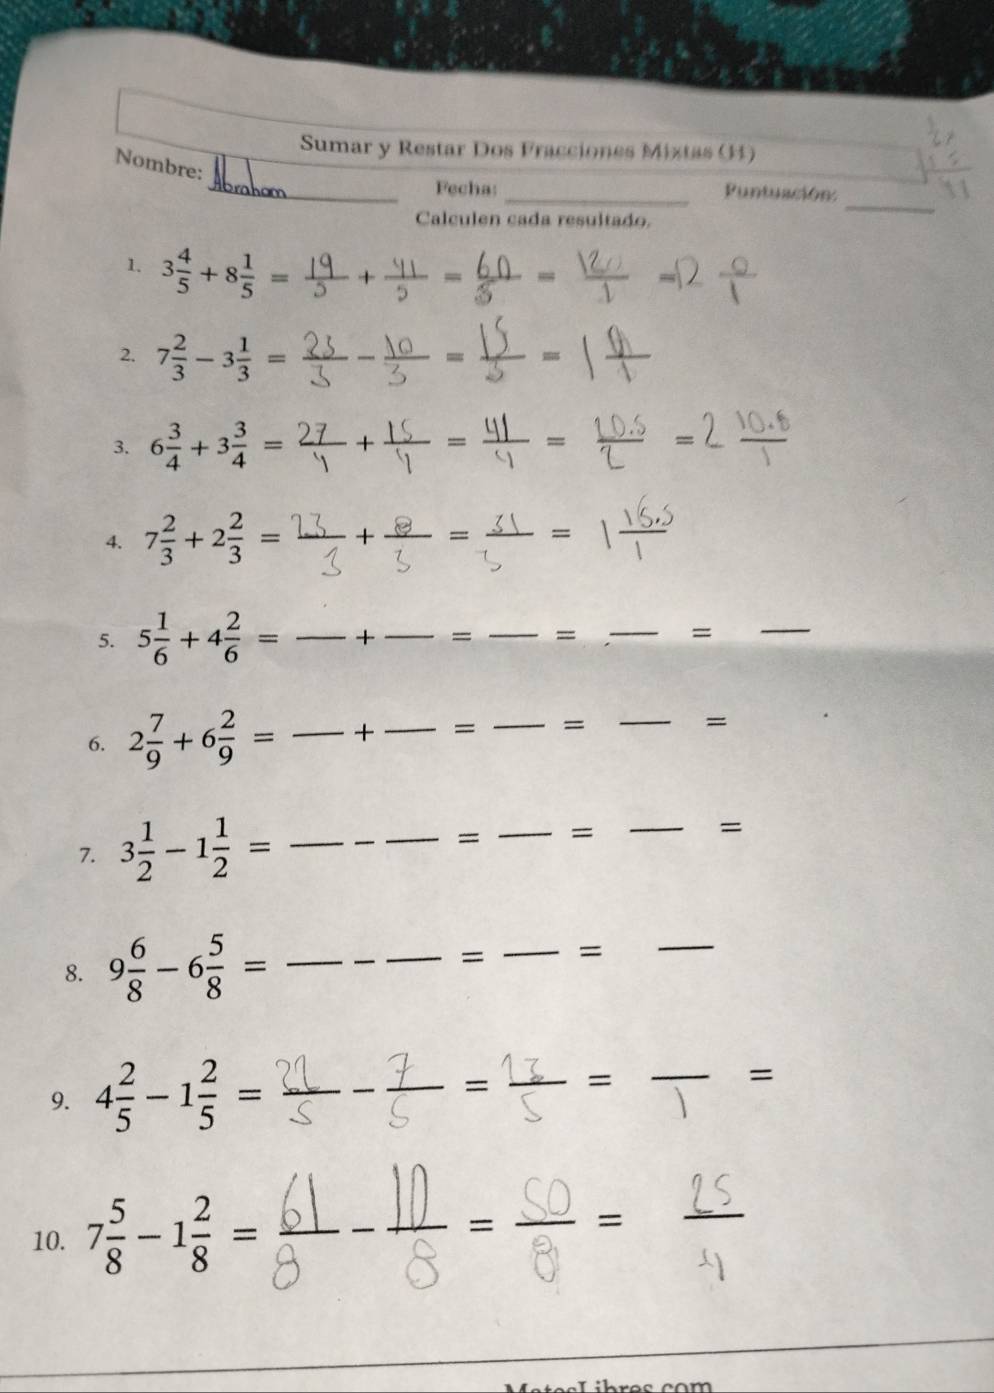 Sumar y Restar Dos Fracciones Mixtas (H)
Nombre: Abraham Fecha: Puntuación:
Calculen cada resultado.
1. 3 4/5 + 8 1/5 = 19/5 + 41/5 = 60/5 = 120/1 = 12 0/1
2. 7 2/3 - 3 1/3 = 23/3 - 10/3 = 13/3 = 1 0/1
3. 6 3/4 + 3 3/4 = 27/4 + 15/4 = 41/4 = 20.5/2 = 2 10.5/1
4. 7 2/3 + 2 2/3 = 23/3 + 8/3 = 31/3 = 1 15.5/1
5. 5 1/6 + 4 2/6 = __ + __ = __ = __ = __
6. 2 7/9 + 6 2/9 = __ + __ = __ = __ =
7. 3 1/2 - 1 1/2 = __ - __ = __ = __ =
8. 9 6/8 - 6 5/8 = __ - __ = __ = __
9. 4 2/5 - 1 2/5 = 22/5 - 7/5 = 13/5 = __/1 =
10. 7 5/8 - 1 2/8 = 61/8 - 10/8 = 50/8 = 25/4
MatesLibres.com